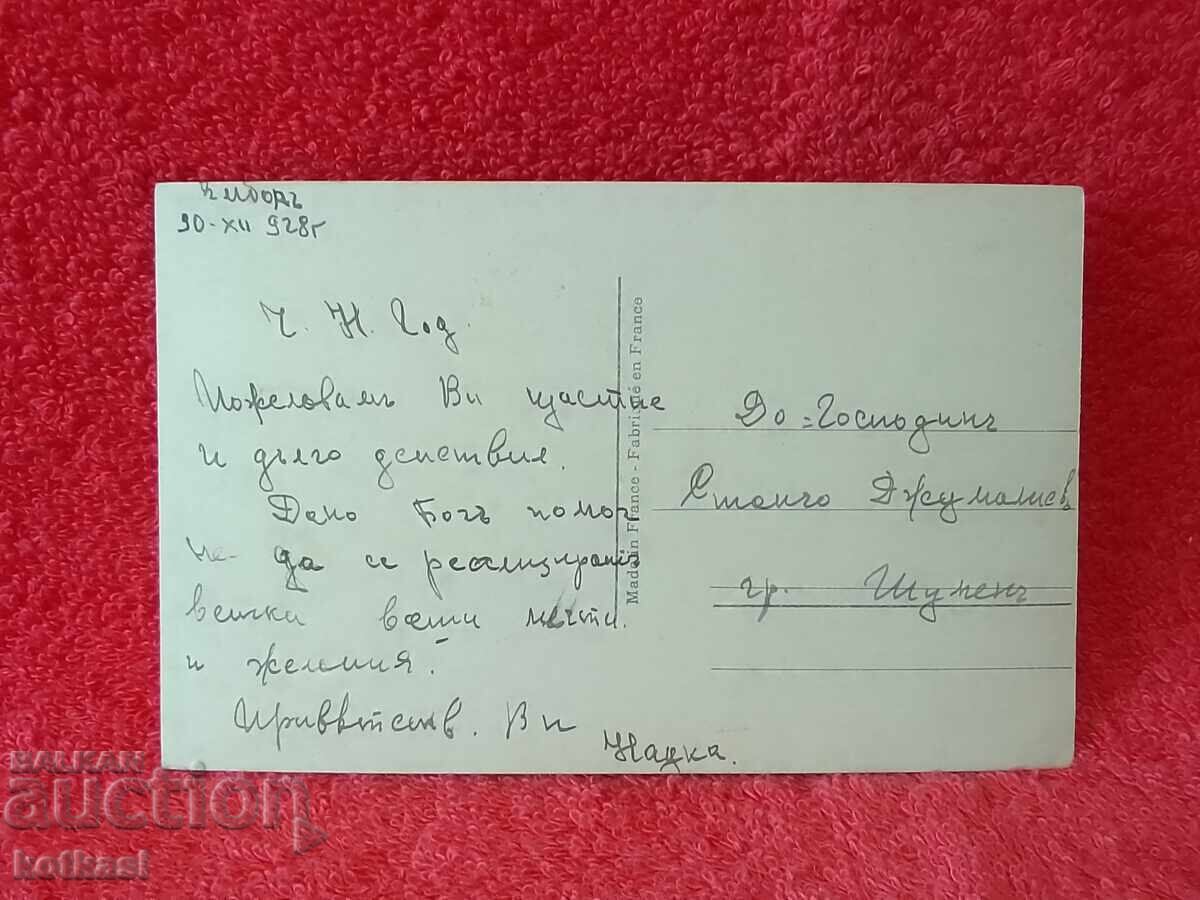 30-XII 928г
Ч. Н. Год.
Пожеловамъ Ви щастие
и дълго действия.
Дано Богъ помог-
не да се реализиратъ
всички ваши мечти.
и желания.
Приветств. Ви
Надка.
Made in France - Fabriqué en France
До = Господинъ
Станчо Джумалиевъ
гр. Шуменъ
BALKAN
auction
kotkasl